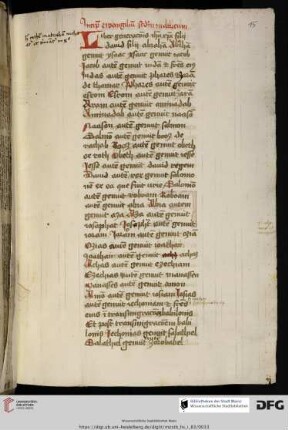 Incipit evangelium secundum matheum
Liber generationis ihesu xpi filii
david filii abraham Abraham
genuit ysaac ysaac genuit iacob
Iacob autem genuit iudam et fratres eius
Iudas autem genuit phares et zaram
de thamar Phares autem genuit
esrom Esrom autem genuit aram
Aram autem genuit aminadab
Aminadab autem genuit naason
Naason autem genuit salmon
Salmon autem genuit booz de
raab Booz autem genuit obeth
ex ruth Obeth autem genuit iesse
Iesse autem genuit david regem
David autem rex genuit salomo
nem ex ea que fuit urie Salomon
autem genuit roboam Roboam
autem genuit abia Abia autem
genuit asa Asa autem genuit
iosaphat Iosaphat autem genuit
ioram Ioram autem genuit oziam
Ozias autem genuit ioathan
Ioathan autem genuit achas
Achas autem genuit ezechiam
Ezechias autem genuit manassen
Manasses autem genuit amon
Amon autem genuit iosiam Iosias
autem genuit iechoniam et fratres
eius in transmigratione babilonis
Et post transmigrationem babi
lonis Iechonias genuit salathiel
Salathiel genuit zorobabel
UNIVERSITÄTS-BIBLIOTHEK HEIDELBERG
Bibliotheken der Stadt Mainz
Wissenschaftliche Stadtbibliothek
DFG